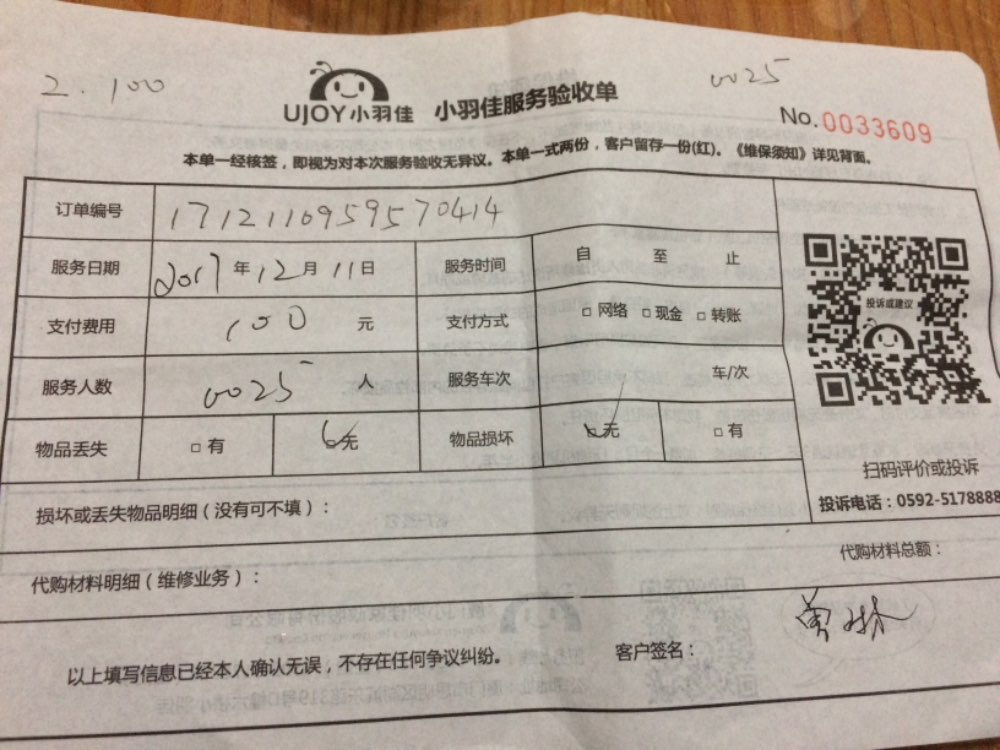 2.100
0025
UJOY小羽佳 小羽佳服务验收单
No.0033609
本单一经核签，即视为对本次服务验收无异议。本单一式两份，客户留存一份(红)。《维保须知》详见背面。
订单编号 1712110959570414
服务日期 2017年12月11日 服务时间 自 至 止
支付费用 100 元 支付方式 □网络 □现金 □转账
投诉或建议
服务人数 0025 人 服务车次 车/次
物品丢失 □有 ☑无 物品损坏 ☑无 □有
扫码评价或投诉
投诉电话：0592-5178888
损坏或丢失物品明细（没有可不填）：
代购材料明细（维修业务）： 代购材料总额：
以上填写信息已经本人确认无误，不存在任何争议纠纷。 客户签名：